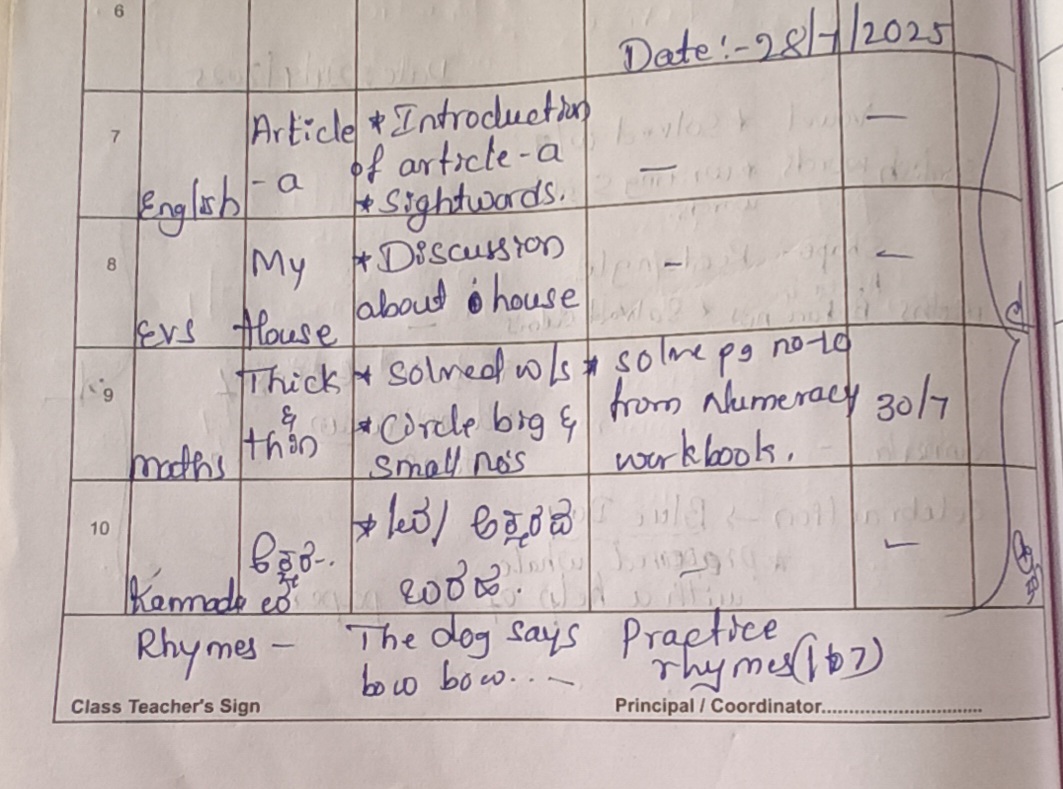 6
Date:-28/7/2025
7 English Article - a * Introduction of article-a * Sightwords. — —
8 EVS My House * Discussion about house - —
9 maths Thick & thin * Solved w/s * Circle big & small no's * solve pg no-10 from Numeracy workbook. 30/7
10 Kannada ಅಕ್ಷರ-. ಬರೆದ. —
Rhymes - The dog says bow bow... Practice rhymes(1to7)
Class Teacher's Sign Principal / Coordinator..............................